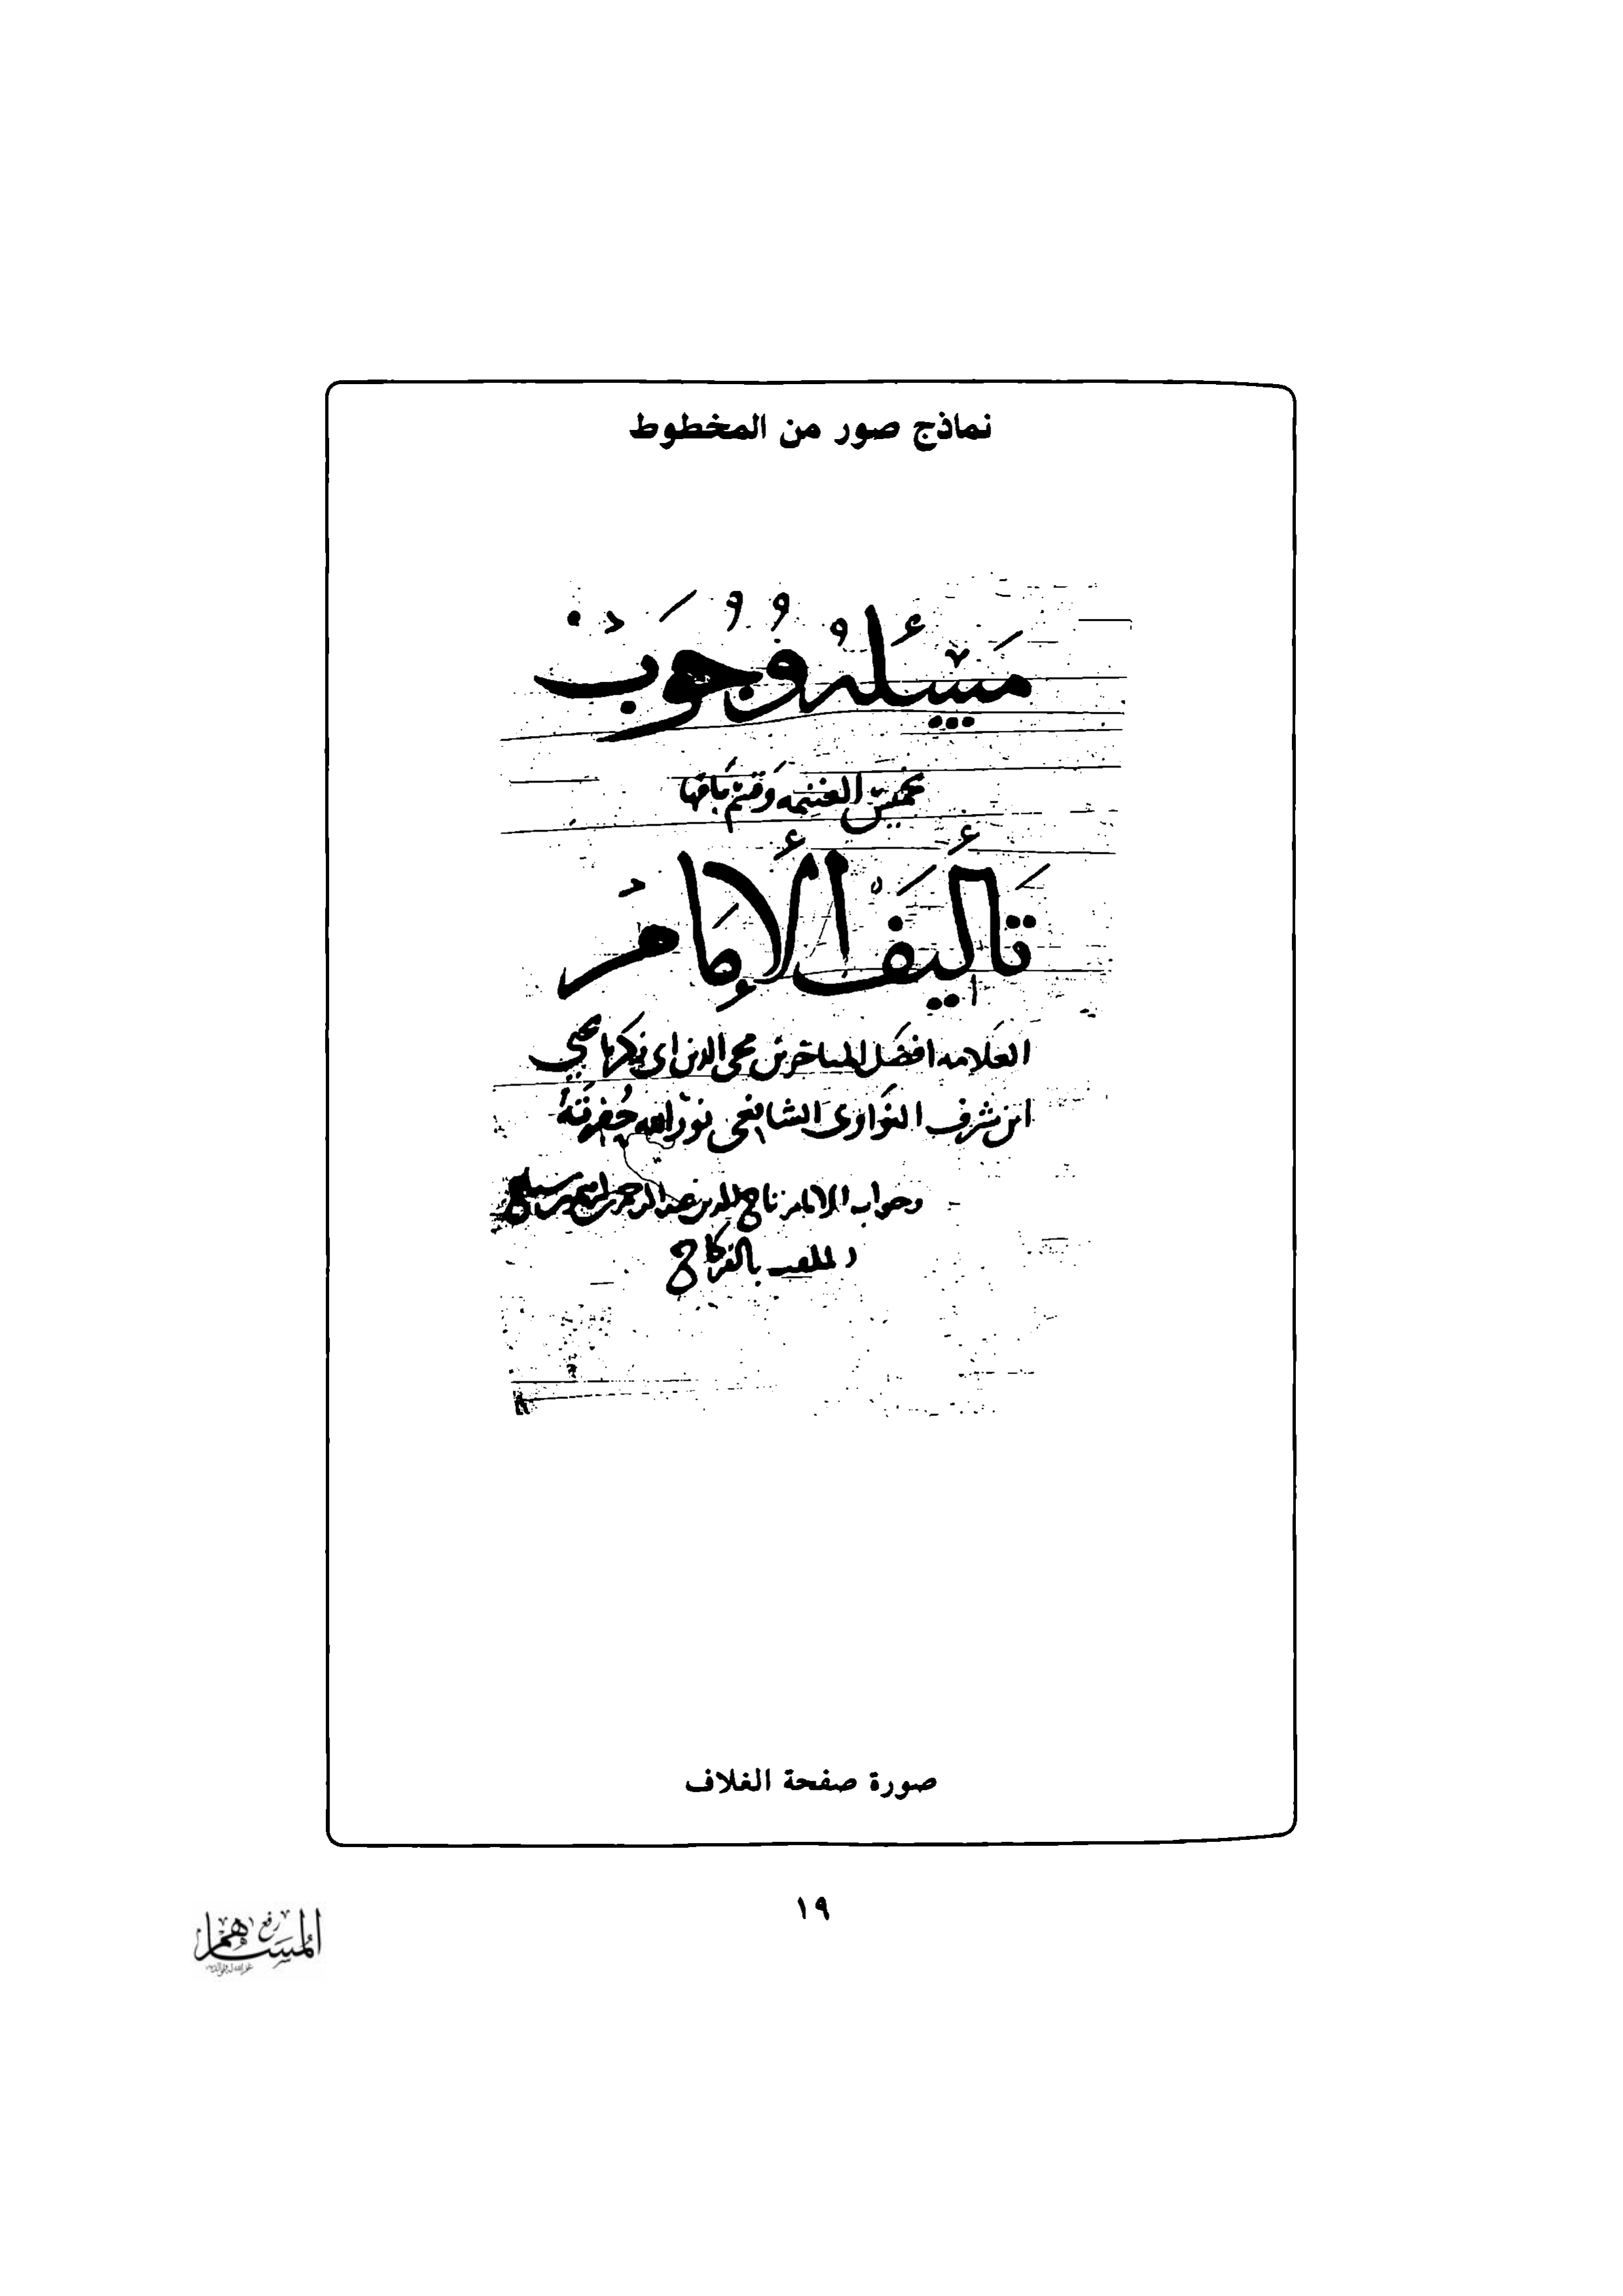 نماذج صور من المخطوط
مَسْئَلَةُ وُجُوبِ
تخميس الغنيمه وَقَسْم بَاقيها
تَأليفُ الإمَامِ
العَلامه افضَل المتاخرين محيى الدين ابى زكريا يحيى
ابن شرف النَواوى الشافعى نوّر الله حُفرتَهُ
وجواب الامام تاج الدين عبد الرحمن بن
الملقب بالفركاح
صورة صفحة الغلاف
١٩
المساهم